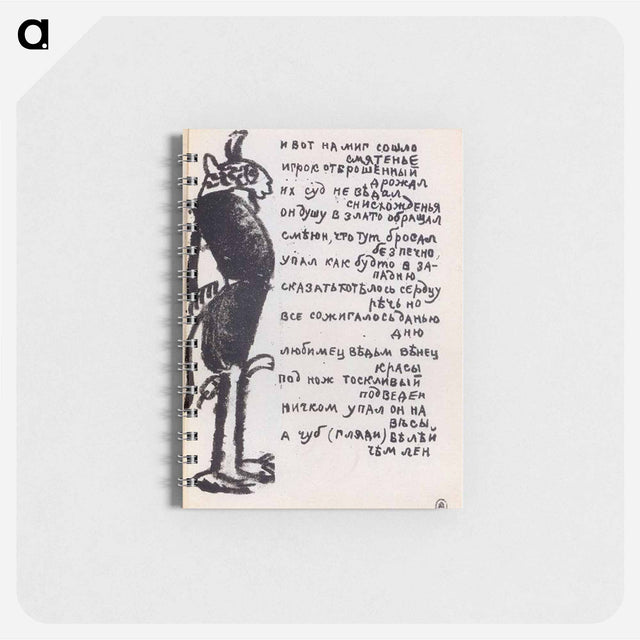 a.
и вот на миг сошло
смятенье
игрок отброшенный
дрожал
их суд не вѣдал
снисхожденья
он душу в злато обращал
смѣюн, что тут бросал
безпечно,
упал как будто в за-
падню
сказать хотѣлось сердцу
рѣчь но
все сожигалось данью
дню
любимец вѣдьм вѣнец
красы
под нож тоскливый
подведен
ничком упал он на
вѣсы
а чуб (гляди) бѣлѣй
чѣм лен